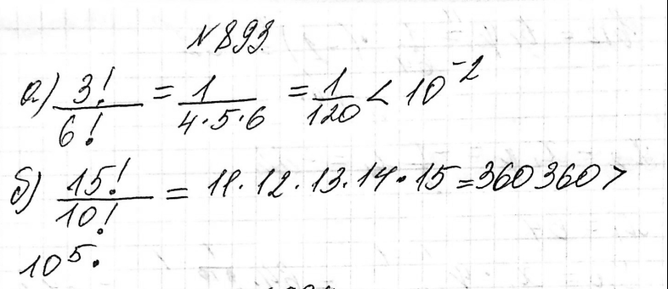 №893.
а) 3!/6! = 1/4·5·6 = 1/120 < 10⁻²
б) 15!/10! = 11·12·13·14·15=360360>
10⁵.